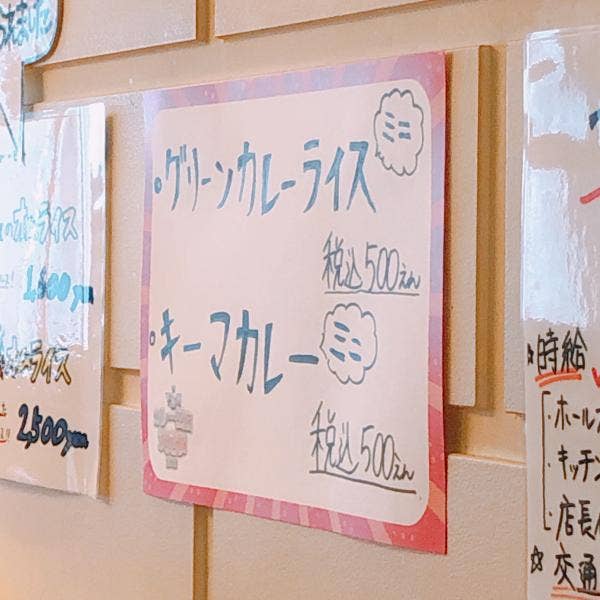 ミニ
・グリーンカレーライス
税込500えん
・キーマカレー
ミニ
税込500えん
ライス
ライス
2,500yen
☆時給
・ホール
・キッチン
・店長
☆交通